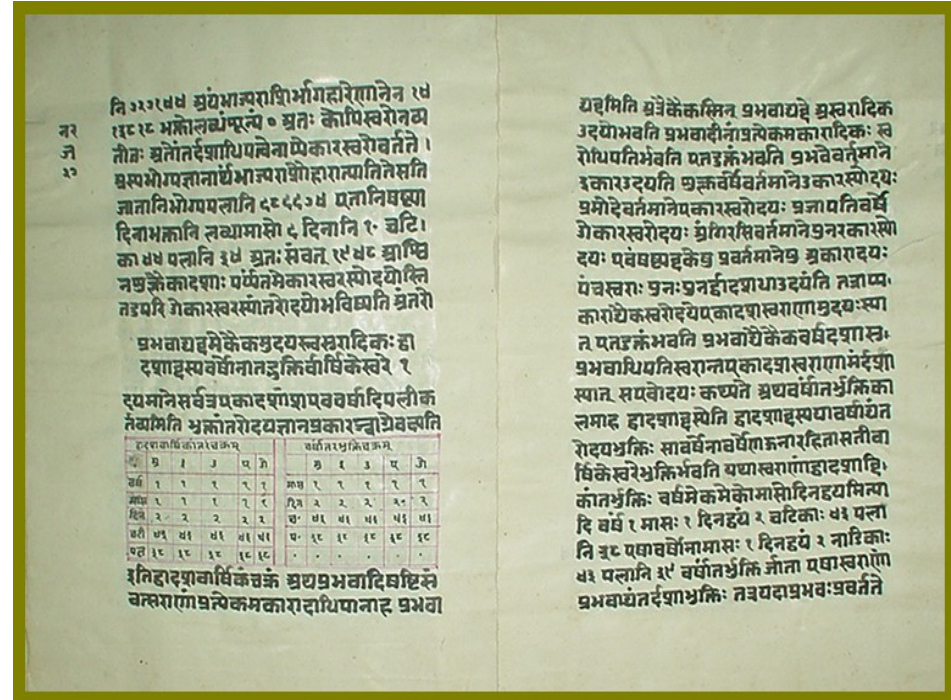 नर
ज
३२
नि २२१४४ अयंभाज्यराशिर्भागहारेणानेन १४
१३८१८ भक्तोलब्धंशून्यं ० अतः कोपिस्वरोनव्य
तीतः अतोंतर्दशाधिपत्वेनाप्येकारस्वरोवर्तते ।
अस्यभोग्यज्ञानार्थंभाज्यराशेर्हारात्पातितेसति
जातानिभोग्यपलानि षष्ट्या
दिनाभक्तानि लब्धामासो ९ दिनानि १० घटि
का ४४ पलानि ३४ अतः संवत् १९४८
तदुपरि ओकारस्वरस्यांतरोदयोभविष्यति अंतरो
प्रभवाद्यब्दमेकैकमुदयस्वस्वरादिकः द्वा
दशाब्दस्यवर्षोनातद्भुक्तिर्वार्षिकेस्वरे १
दयमानेसर्वत्रएकादशांशएववर्षादिपलीक
र्तव्यमिति भुक्तांतरोदयज्ञानप्रकारस्त्वग्रेवक्ष्यति
द्वादशवार्षिकांतरचक्रम् वर्षांतरभुक्तिचक्रम्
अ इ उ ए ओ अ इ उ ए ओ
वर्ष १ १ १ १ १ मास १ १ १ १ १
मास १ १ १ १ १ दिन २ २ २ २ २
दिन २ २ २ २ २ घ॰ ४३ ४३ ४३ ४३ ४३
घटी ४३ ४३ ४३ ४३ ४३ प॰ ३८ ३८ ३८ ३८ ३८
पल ३८ ३८ ३८ ३८ ३८ ० ० ० ० ०
इतिद्वादशवार्षिकंचक्रं अथप्रभवादिषष्टिसं
वत्सराणांप्रत्येकमकारादाधिपानाह प्रभवा
द्यब्दमिति अत्रैकैकस्मिन् प्रभवाद्यब्दे अस्वरादिक
उदयोभवति प्रभवादीनांप्रत्येकमकारादिकः स्व
रोधिपतिर्भवति एतदुक्तंभवति प्रभवेवर्तमाने
इकारउदयति शुक्लवर्षेवर्तमानेउकारस्योदयः
प्रमोदेवर्तमानेएकारस्वरोदयः प्रजापतिवर्षे
ओकारस्वरोदयः अंगिरसिवर्तमानेपुनरकारस्यो
दयः एवंषष्ट्यब्दकेषु प्रवर्तमानेषु अकारादयः
पंचस्वराः पुनःपुनर्द्वादशधाउदयंति तत्राप्य
काराद्येकस्वरोदयेएकादशस्वराणामुदयःस्या
त् एतदुक्तंभवति प्रभवाद्येकैकवर्षदशासु
प्रभवाधिपतिस्वरान्तएकादशस्वराणामंर्दशा
स्यात् सएवोदयः कथ्यते अथवर्षांतर्भुक्तिका
लमाह द्वादशाब्दस्येति द्वादशाब्दस्ययावर्षाद्यंत
रोदयभुक्तिः सावर्षेनावर्षेणऊनारहितासतीवा
र्षिकेस्वरेभुक्तिर्भवति यथास्वराणांद्वादशाब्दि
कांतर्भुक्तिः वर्षमेकमेकोमासोदिनद्वयमित्या
दि वर्ष १ मासः १ दिनद्वयं २ घटिकाः ४३ पला
नि ३८ एषावर्षोनामासः १ दिनद्वयं २ नाडिकाः
४३ पलानि ३९ वर्षांतर्भुक्ति र्जाता एषास्वराणां
प्रभवाद्यंतर्दशाभुक्तिः तत्रयदाप्रभवःप्रवर्तते